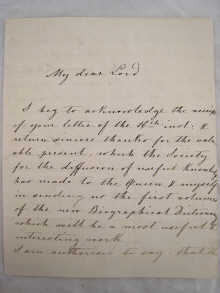 My dear Lord
I beg to acknowledge the receipt
of your letter of the 16th inst: &
return sincere thanks for the valu
able present, which the Society
for the diffusion of useful Knowledge
has made to the Queen & myself
in sending us the first volume
of the new Biographical Dictionary
which will be a most useful &
interesting work
I am authorised to say that